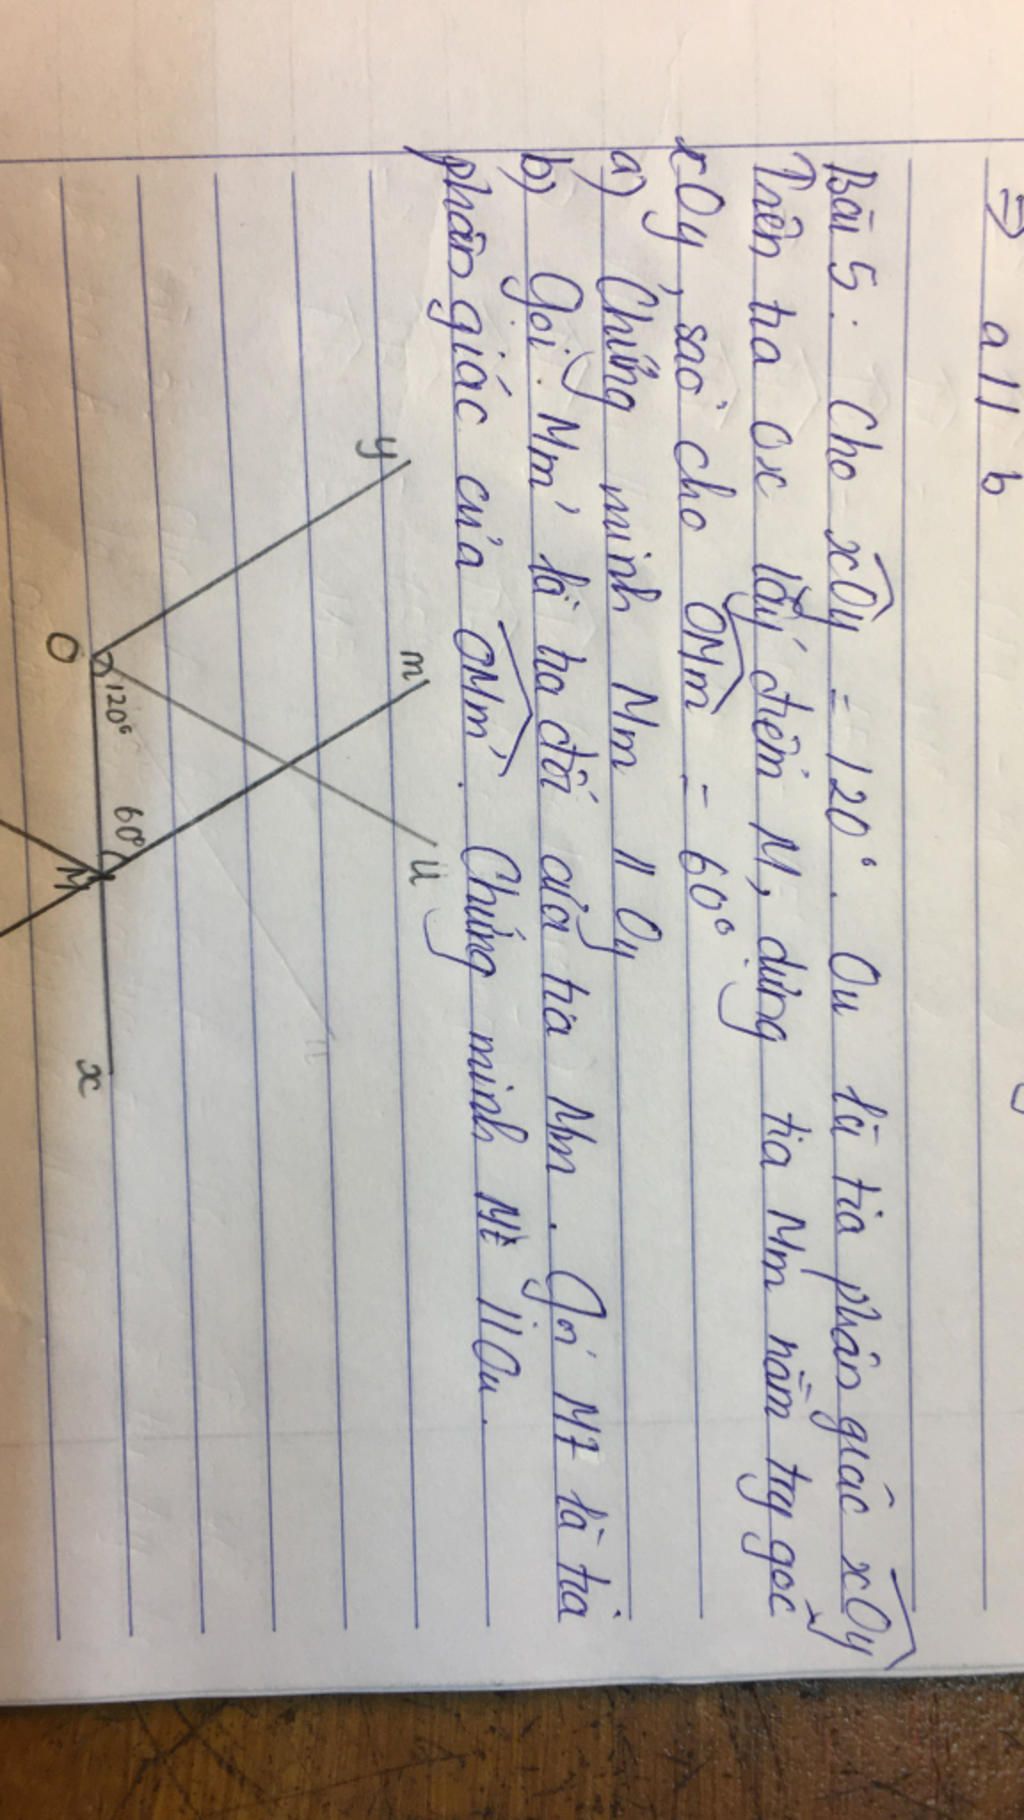 ⇒ a // b
Bài 5: Cho xOy = 120°. Ou là tia phân giác xOy
Trên tia Ox lấy điểm M, dựng tia Mm nằm trg góc
xOy, sao cho OMm = 60°
a) Chứng minh Mm // Oy
b) Gọi Mm' là tia đối của tia Mm. Gọi Mt là tia
phân giác của OMm'. Chứng minh Mt // Ou.
y
m
u
O
120°
60°
M
x